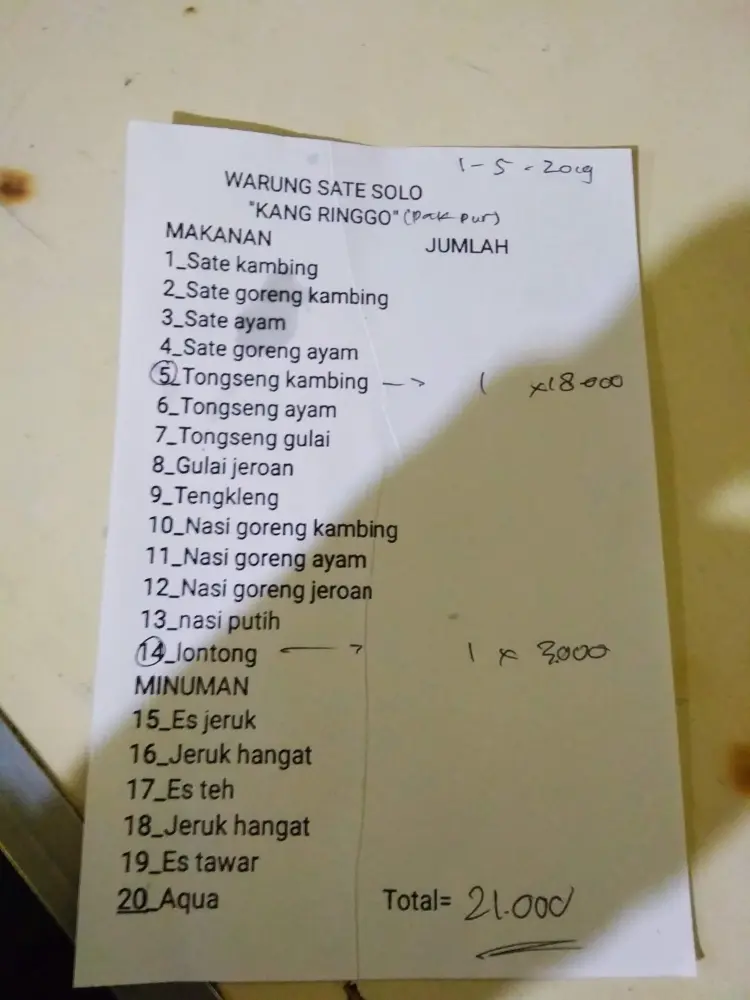 1-5-2019
WARUNG SATE SOLO
"KANG RINGGO" (pak pur)
MAKANAN JUMLAH
1_Sate kambing
2_Sate goreng kambing
3_Sate ayam
4_Sate goreng ayam
5_Tongseng kambing —> 1 x18.000
6_Tongseng ayam
7_Tongseng gulai
8_Gulai jeroan
9_Tengkleng
10_Nasi goreng kambing
11_Nasi goreng ayam
12_Nasi goreng jeroan
13_nasi putih
14_lontong —> 1 x 3.000
MINUMAN
15_Es jeruk
16_Jeruk hangat
17_Es teh
18_Jeruk hangat
19_Es tawar
20_Aqua Total= 21.000